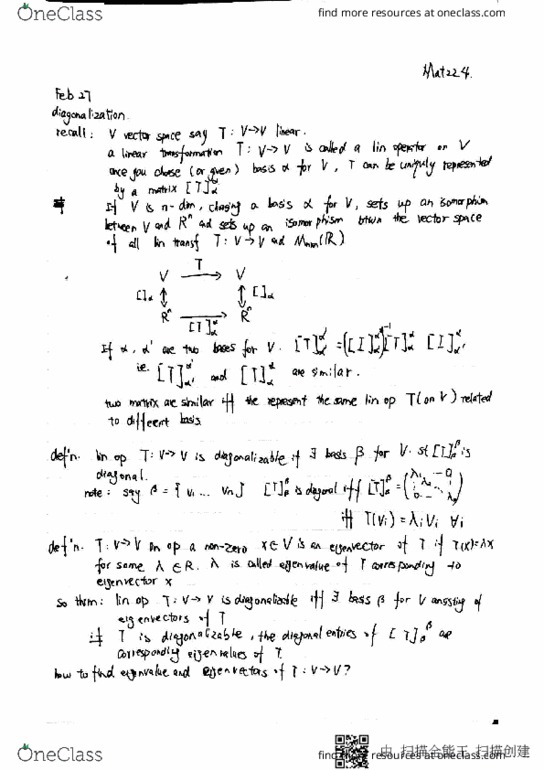 OneClass
find more resources at oneclass.com
Mat224.
Feb 27
diagonalization.
recall: V vector space say T: V→V linear.
a linear transformation T: V→V is called a lin operator on V
once you choose (or given) basis α for V, T can be uniquly represented
by a matrix [T]αα
If V is n-dim, chasing a basis α for V, sets up an isomorphism
between V and Rⁿ ad sets up an isomorphism btwn the vector space
of all lin transf T: V→V ad Mnxn(R)
V T→ V
[]α ↕ ↕ []α
Rⁿ → Rⁿ
[T]αα
If α, α' are two bases for V. [T]α'α' = ([I]αα')⁻¹[T]αα [I]αα'
ie. [T]α'α' and [T]αα are similar.
two matrix are similar iff the represent the same lin op T(on V) related
to different basis.
def'n. lin op T: V→V is diagonalizable if ∃ basis β for V. st [T]ββ is
diagonal.
note: say β = { v₁ ... vn } [T]ββ is diagonal iff [T]ββ = (λ₁ ... 0 λ₂ 0 ... λn)
iff T(vi) = λi vi ∀i
def'n. T: V→V lin op a non-zero x∈V is an eigenvector of T if T(x)=λx
for some λ∈R. λ is called eigenvalue of T corresponding to
eigenvector x
so thm: lin op T: V→V is diagonalizable iff ∃ basis β for V consisting of
eigenvectors of T
if T is diagonalizable, the diagonal entries of [T]ββ are
corresponding eigenvalues of T.
how to find eigenvalue and eigenvectors of T: V→V?
OneClass
find more resources at oneclass.com
扫描全能王 扫描创建